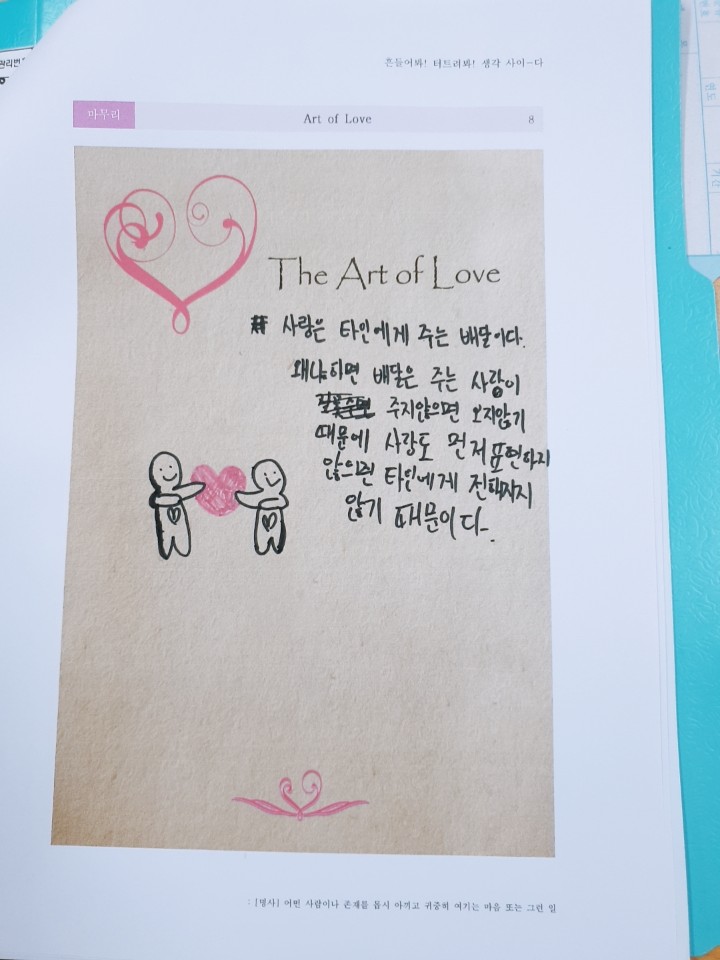 관리번
흔들어봐! 터트려봐! 생각 사이-다
마무리 Art of Love 8
The Art of Love
사랑은 타인에게 주는 배달이다.
왜냐하면 배달은 주는 사람이
주지않으면 오지않기
때문에 사랑도 먼저 표현하지
않으면 타인에게 전해지지
않기 때문이다.
: [명사] 어떤 사람이나 존재를 몹시 아끼고 귀중히 여기는 마음 또는 그런 일